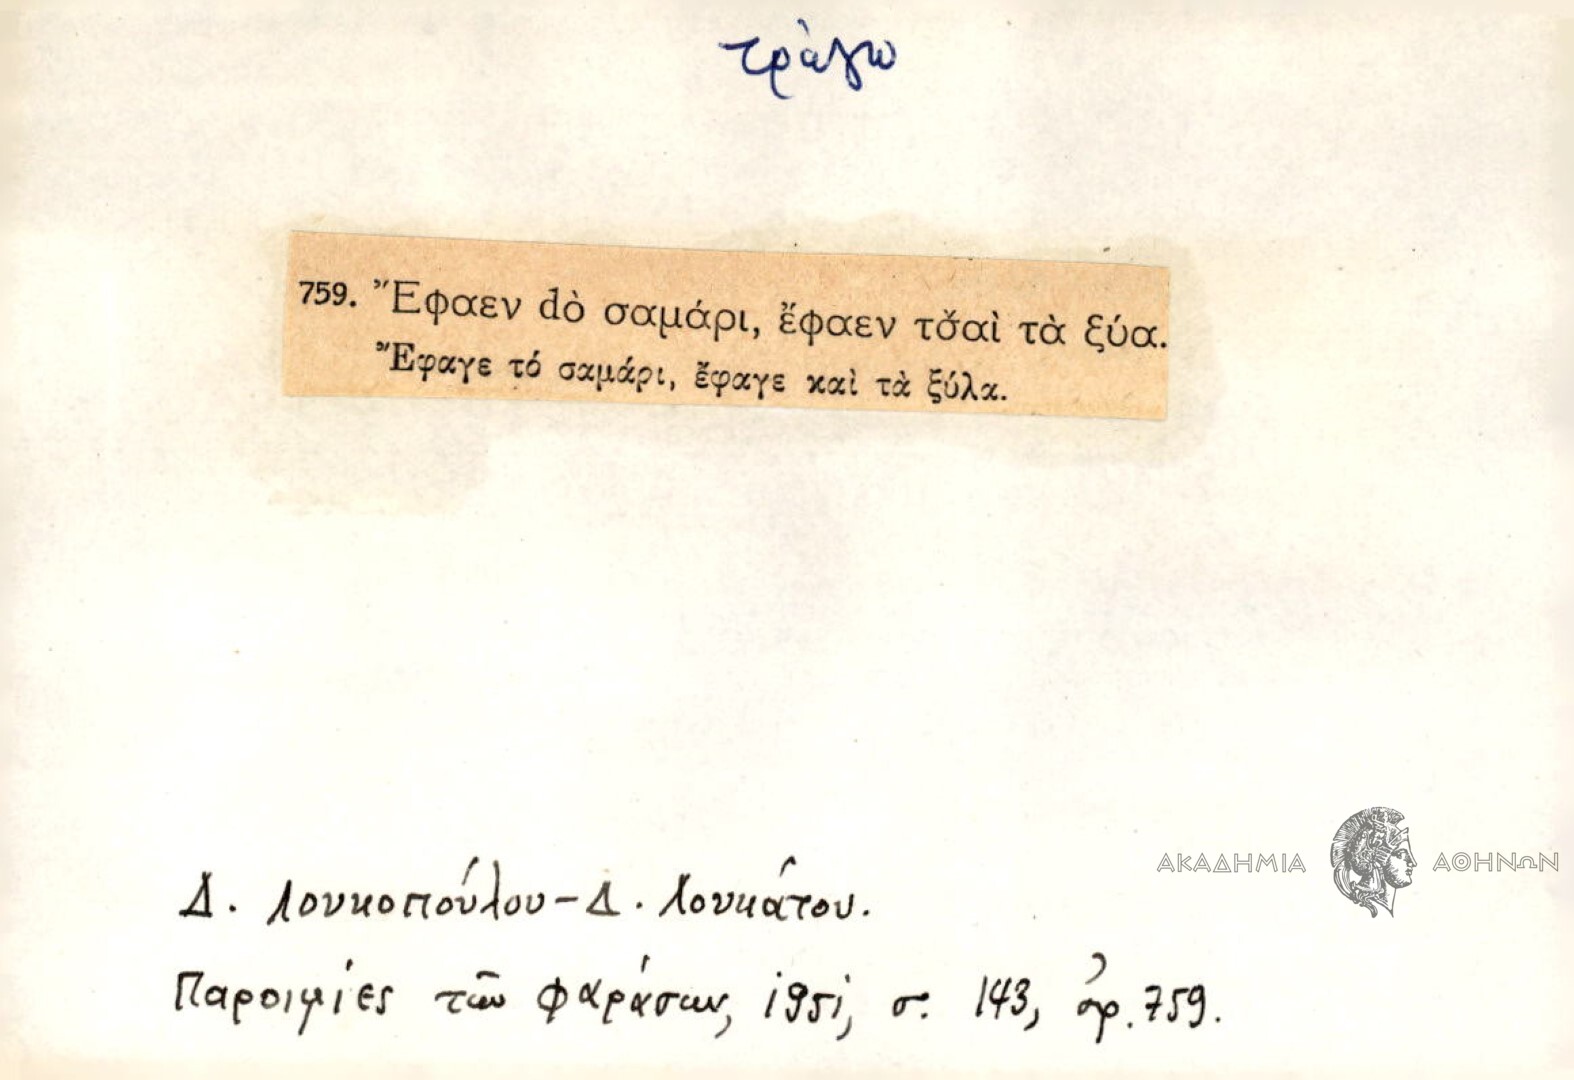 τρώγω
759. Ἔφαεν dὸ σαμάρι, ἔφαεν τσ̌αὶ τὰ ξύα.
Ἔφαγε τό σαμάρι, ἔφαγε καὶ τὰ ξύλα.
ΑΚΑΔΗΜΙΑ ΑΘΗΝΩΝ
Δ. Λουκοπούλου - Δ. Λουκάτου.
Παροιμίες τῶν Φαράσων, 1951, σ. 143, ἀρ. 759.